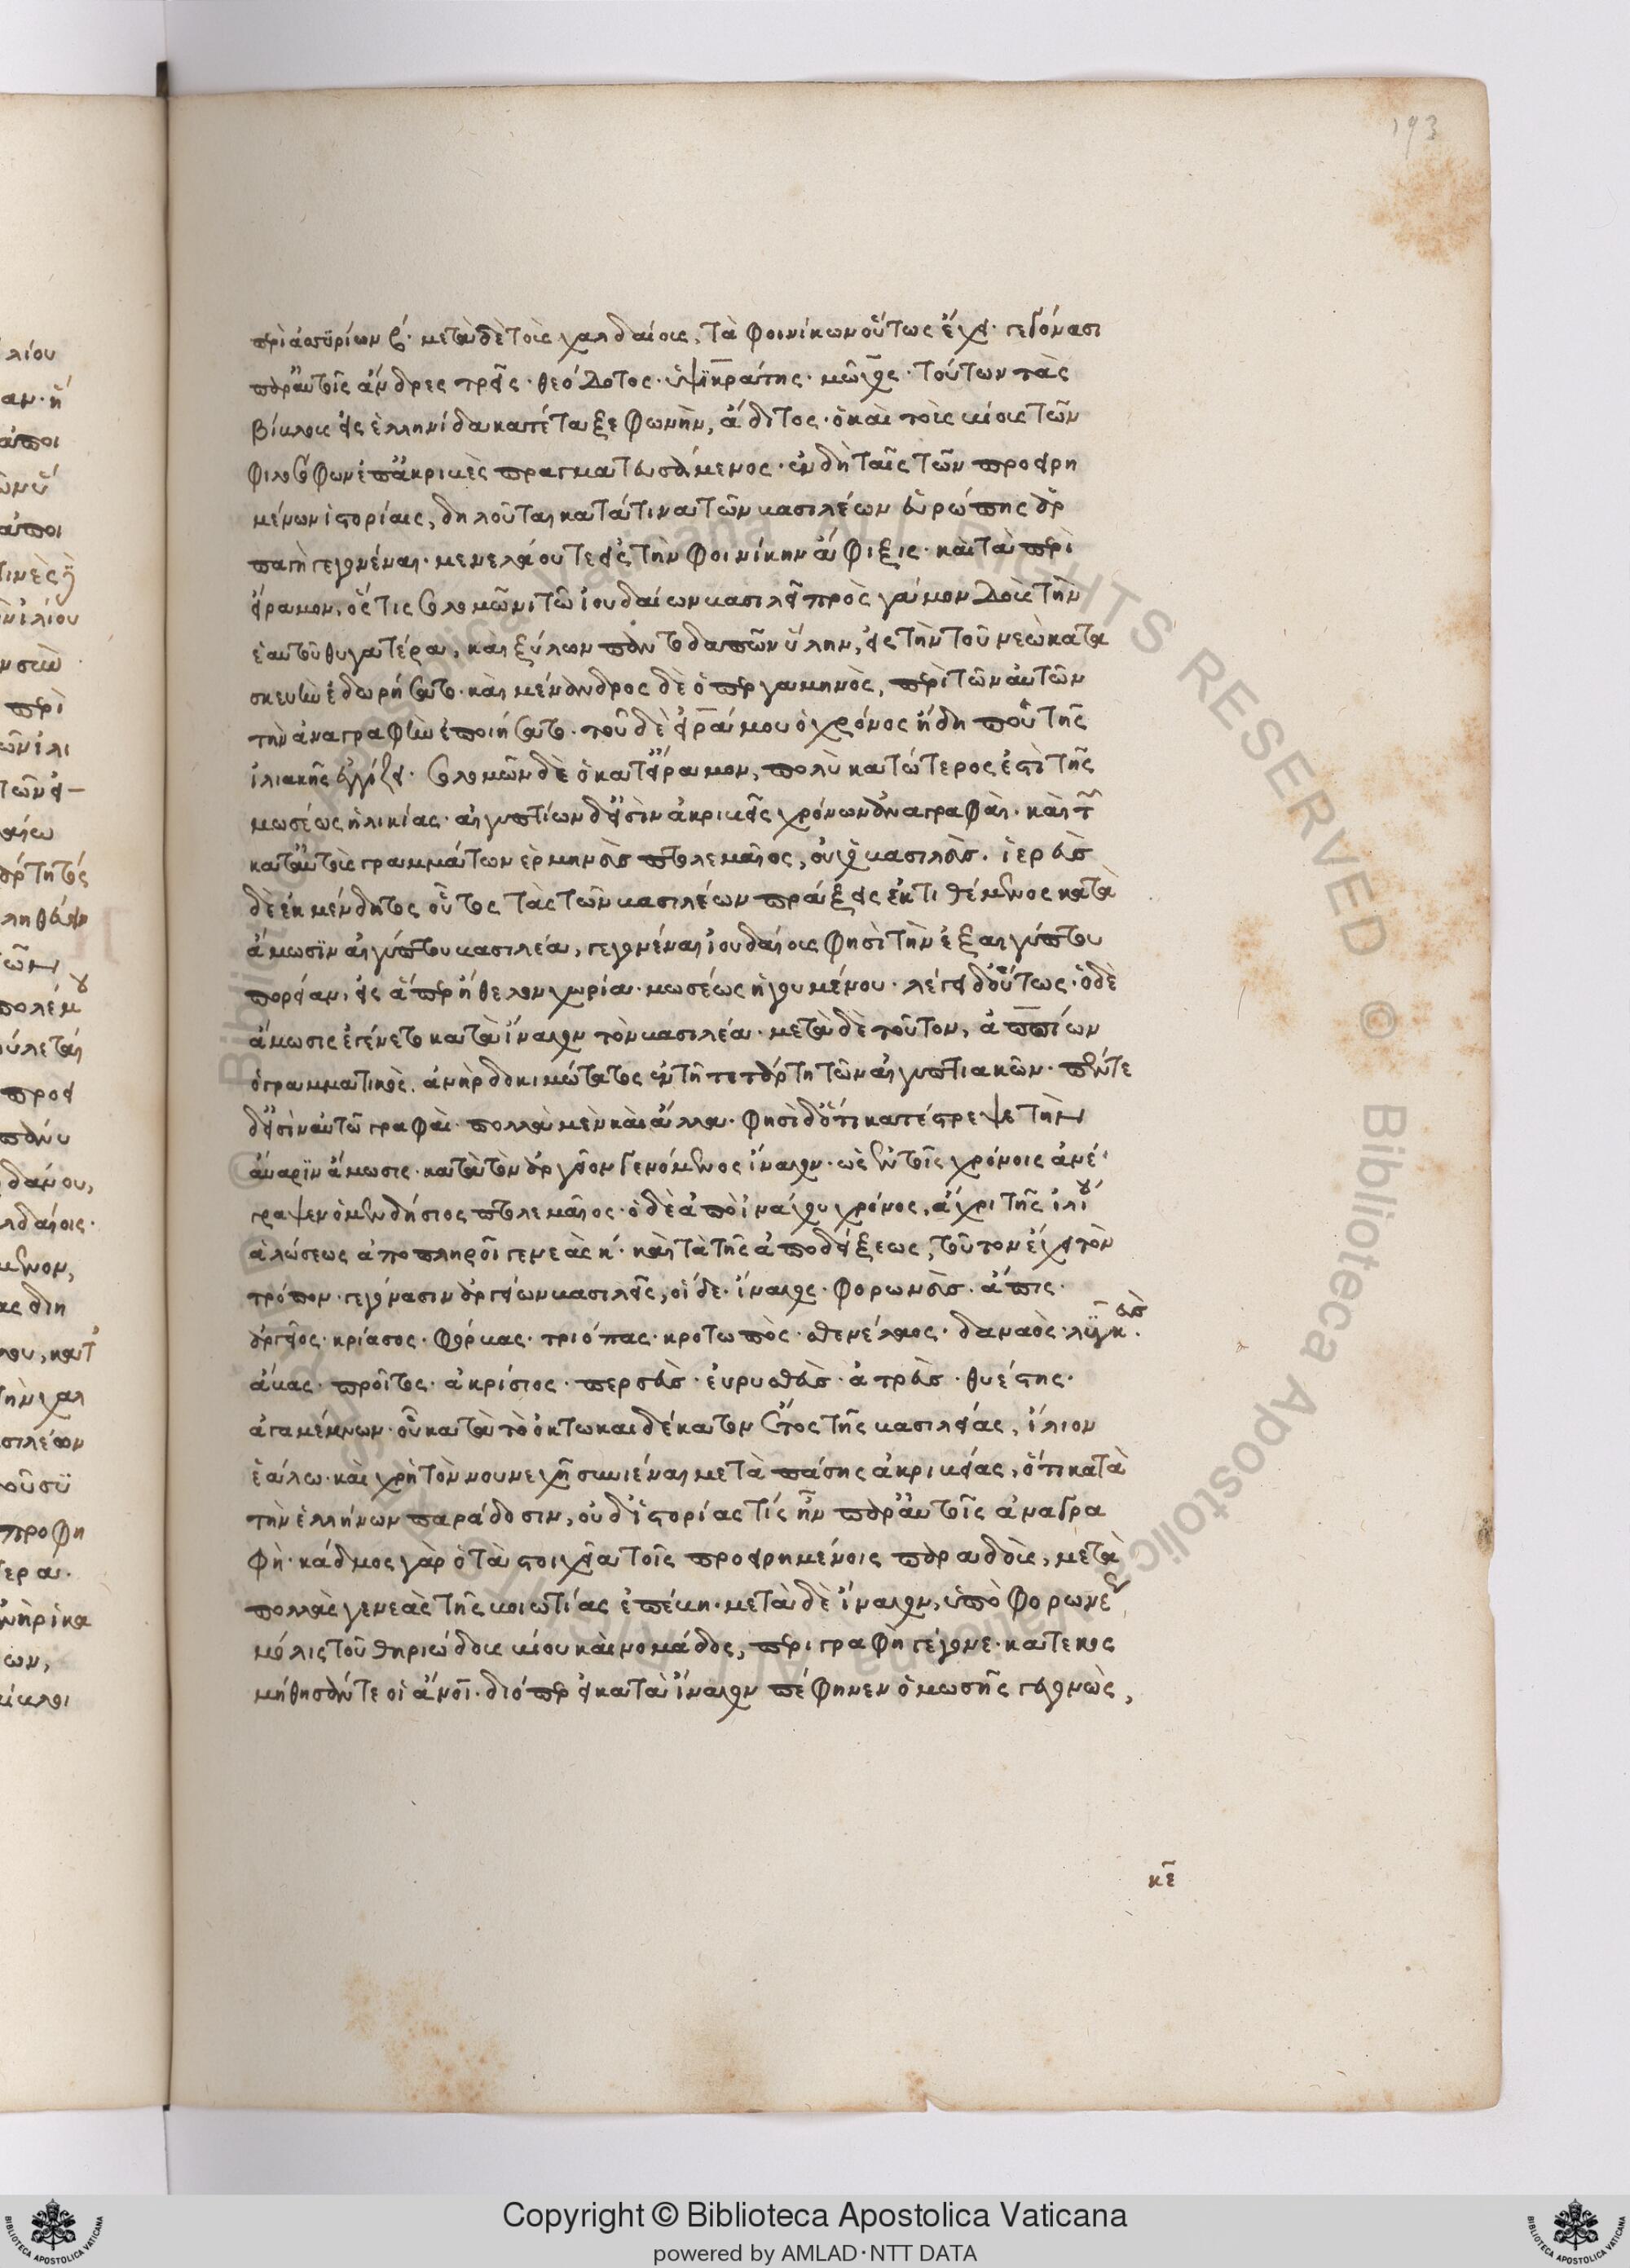 193
περὶ ἀσσυρίων β´· μετὰ δὲ τοὺς χαλδαίους, τὰ φοινίκων οὕτως ἔχει· γεγόνασι
παρ' αὐτοῖς ἄνδρες τρεῖς· θεόδοτος· ὑψικράτης· μῶχος· τούτων τὰς
βίβλους εἰς ἑλληνίδα κατέταξε φωνὴν, ἄδιτος· ὁ καὶ τοὺς βίους τῶν
φιλοσόφων ἐπ' ἀκριβὲς πραγματευσάμενος· ἐν δὴ ταῖς τῶν προειρη
μένων ἱστορίαις, δηλοῦται κατά τινα τῶν βασιλέων εὐρώπης ἁρ
παγὴ γεγονέναι· μενελάου τε εἰς τὴν φοινίκην ἄφιξις· καὶ τὰ περὶ
εἴραμον, ὅς τις σολομῶνι τῶ ἰουδαίων βασιλεῖ πρὸς γάμον δοὺς τὴν
ἑαυτοῦ θυγατέρα, καὶ ξύλων παντοδαπῶν ὕλην, εἰς τὴν τοῦ νεὼ κατα
σκευὴν ἐδωρήσατο· καὶ μένανδρος δὲ ὁ περγαμηνὸς, περὶ τῶν αὐτῶν
τὴν ἀναγραφὴν ἐποιήσατο· τοῦ δὲ εἰράμου ὁ χρόνος ἤδη που τῆς
ἰλιακῆς ἐγγίζει· σολομῶν δὲ ὁ κατ' εἴραμον, πολὺ κατώτερος ἐστὶ τῆς
μωσέως ἡλικίας· αἰγυπτίων δ' εἰσὶν ἀκριβεῖς χρόνων ἀναγραφαί· καὶ τῶν
κατ' αὐτοὺς γραμμάτων ἑρμηνεὺς πτολεμαῖος, οὐχ ὁ βασιλεὺς. ἱερεὺς
δὲ ἐκ μένδητος οὗτος τὰς τῶν βασιλέων πράξεις ἐκτιθέμενος κατὰ
ἄμωσιν αἰγύπτου βασιλέα, γεγονέναι ἰουδαίοις φησὶ τὴν ἐξ αἰγύπτου
πορείαν, εἰς ἅπερ ἤθελον χωρία· μωσέως ἡγουμένου· λέγει δ' οὕτως· ὁ δὲ
ἄμωσις ἐγένετο κατὰ ἴναχον τὸν βασιλέα· μετὰ δὲ τοῦτον, ἀππίων
ὁ γραμματικὸς. ἀνὴρ δοκιμώτατος ἐν τῆ τετάρτη τῶν αἰγυπτιακῶν· πέντε
δ' εἰσὶν αὐτῶ γραφαὶ· πολλὰ μὲν καὶ ἄλλα· φησὶ δ' ὅτι κατέστρεψε τὴν
ἄναριν ἄμωσις· κατὰ τὸν ἀργεῖον γενόμενος ἴναχον· ὡς ἐν τοῖς χρόνοις ἀνέ
γραψεν ὁ μενδήσιος πτολεμαῖος· ὁ δὲ ἀπὸ ἰνάχου χρόνος, ἄχρι τῆς ἰλίου
ἁλώσεως ἀποπληροῖ γενεὰς κ´· καὶ τὰ τῆς ἀποδείξεως, τοῦτον ἔχει τὸν
τρόπον· γεγόνασιν ἀργείων βασιλεῖς, οἵδε· ἴναχος· φορωνεὺς· ἄπις·
ἀργεῖος· κρίασος· φόρβας· τριόπας· κροτωπὸς· σθενέλαος· δαναὸς· λυγκεὺς·
ἄβας· προῖτος· ἀκρίσιος· περσεὺς· εὐρυσθεὺς· ἀτρεὺς· θυέστης·
ἀγαμέμνων· οὗ κατὰ τὸ ὀκτωκαιδέκατον ἔτος τῆς βασιλείας, ἴλιον
ἑάλω· καὶ χρὴ τὸν νουνεχῆ συνιέναι μετὰ πάσης ἀκριβείας, ὅτι κατὰ
τὴν ἑλλήνων παράδοσιν, οὐδ' ἱστορίας τίς ἦν παρ' αὐτοῖς ἀναγρα
φὴ· κάδμος γὰρ ὁ τὰ στοιχεῖα τοῖς προειρημένοις παραδοὺς, μετὰ
πολλὰς γενεὰς τῆς βοιωτίας ἐπέβη· μετὰ δὲ ἴναχον, ὑπὸ φορωνέως
μόλις τοῦ θηριώδους βίου καὶ νομάδος, περιγραφὴ γέγονε· κατεκος
μήθησάν τε οἱ ἄνοι· διόπερ εἰ κατὰ ἴναχον πέφηνεν ὁ μωσῆς γεγονὼς,
κε